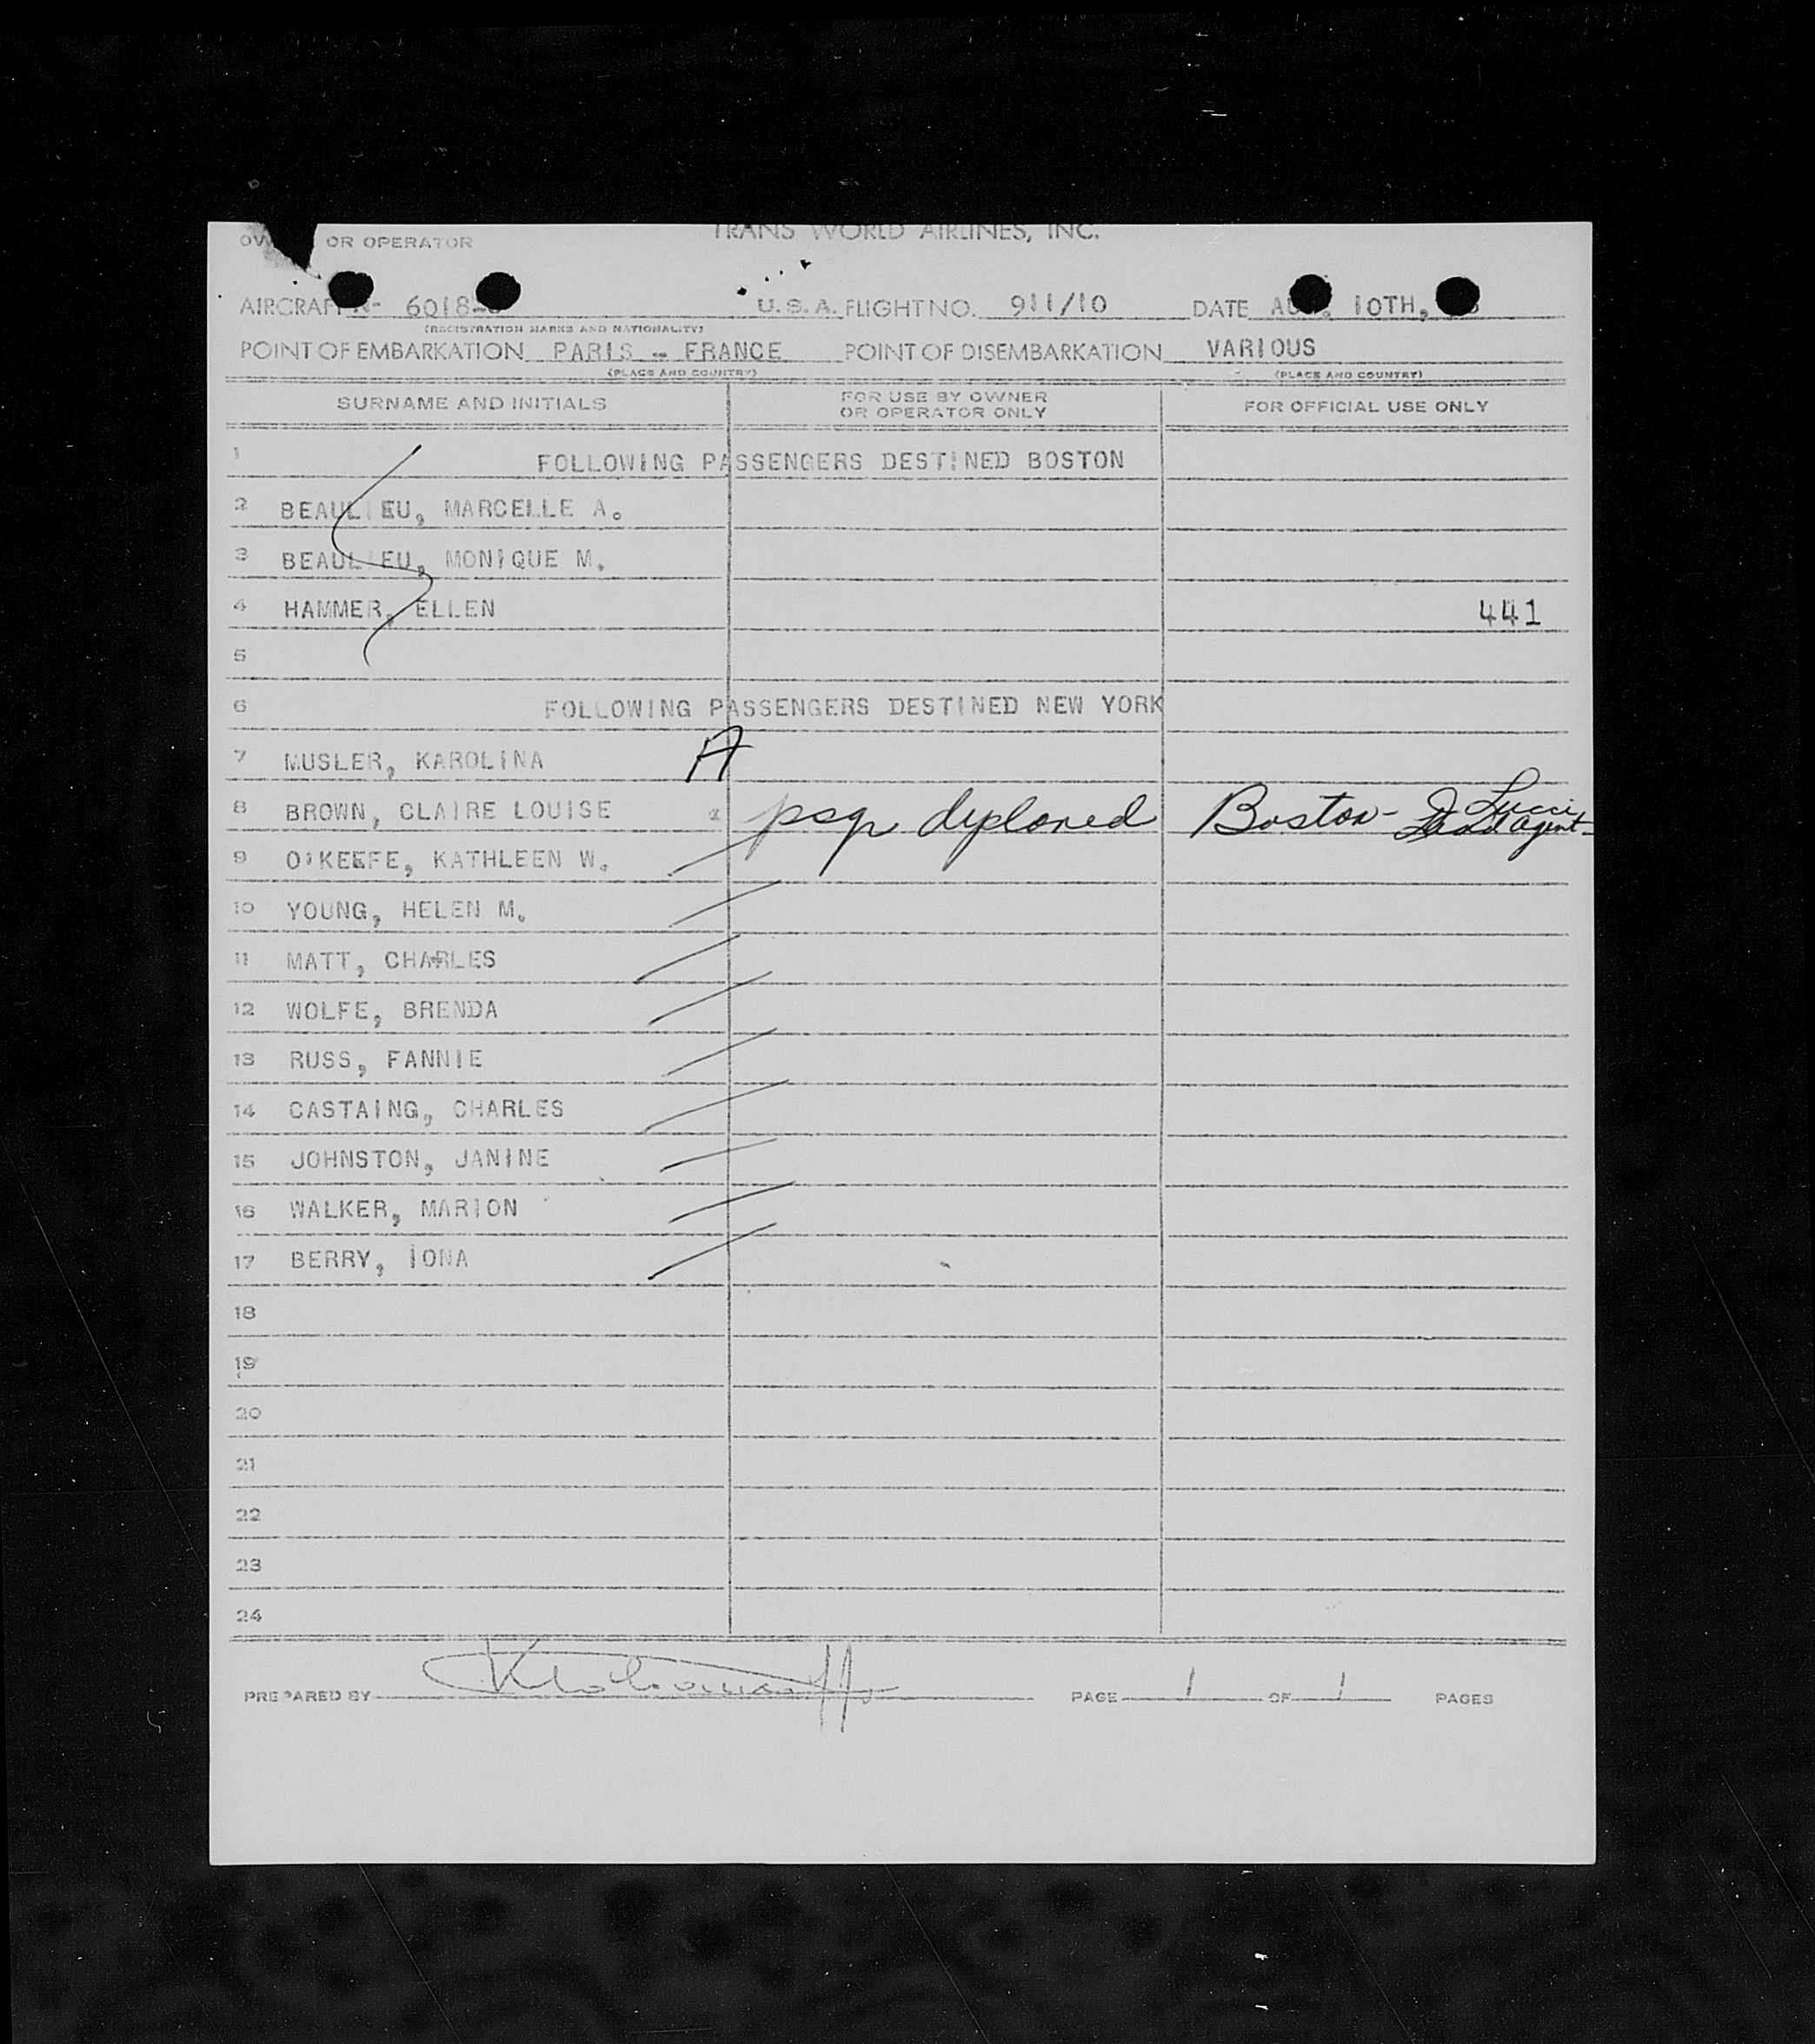 OR OPERATOR TRANS WORLD AIRLINES, INC.
AIRCRAFT N- 6018 U.S.A. FLIGHT NO. 911/10 DATE AUG. 10TH,
(REGISTRATION MARKS AND NATIONALITY)
POINT OF EMBARKATION PARIS - FRANCE POINT OF DISEMBARKATION VARIOUS
(PLACE AND COUNTRY) (PLACE AND COUNTRY)
SURNAME AND INITIALS FOR USE BY OWNER OR OPERATOR ONLY FOR OFFICIAL USE ONLY
1 FOLLOWING PASSENGERS DESTINED BOSTON
2 BEAULIEU, MARCELLE A.
3 BEAULIEU, MONIQUE M.
4 HAMMER, ELLEN 441
5
6 FOLLOWING PASSENGERS DESTINED NEW YORK
7 MUSLER, KAROLINA A
8 BROWN, CLAIRE LOUISE psgr deplaned Boston- Lucci agent
9 O'KEEFE, KATHLEEN W.
10 YOUNG, HELEN M.
11 MATT, CHARLES
12 WOLFE, BRENDA
13 RUSS, FANNIE
14 CASTAING, CHARLES
15 JOHNSTON, JANINE
16 WALKER, MARION
17 BERRY, IONA
18
19
20
21
22
23
24
PREPARED BY PAGE 1 OF 1 PAGES